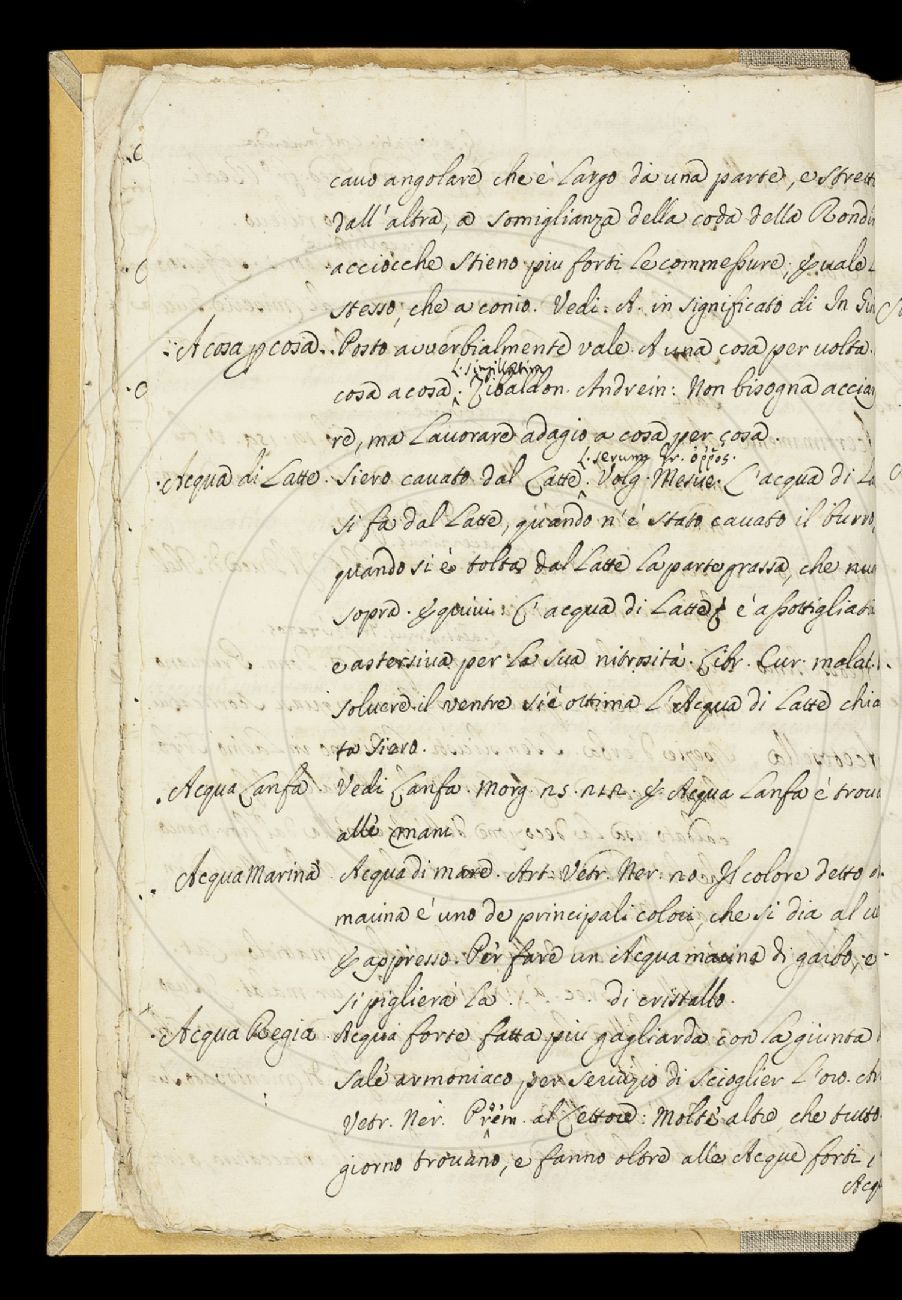 cavo angolare che é Largo da una parte, e strett
dall'altra, a somiglianza della coda della Rondi
acciocche stieno piu forti le commessure, & vale L
stesso, che a conio. Vedi. A. in significato di In
A cosa p cosa. Posto avverbialmente vale. A una cosa per volta.
L. sigillatim
cosa a cosa. Zibaldon. Andrein: Non bisogna accia
re, ma Lavorare adagio a cosa per cosa.
L. serum Gr. ὀῤῥος.
Acqua di Latte. Siero cavato dal Latte. Volg. Mesue. L'acqua di La
si fa dal Latte, quando n'é stato cavato il burro,
quando si é tolta dal Latte La parte grassa, che nuo
sopra. & quivi: L'acqua di Latte é assottigliati
e astersiva per La sua nitrosità. Libr. Cur. malat.
solvere il ventre si é ottima L'Acqua di Latte chia
ta Siero.
Acqua Lanfa. Vedi Lanfa. Morg. 25. 212. & Acqua Lanfa é trov
alle mani
Acqua Marina Acqua di mare. Art. Vetr. Ner. 20. Il colore detto
marina é uno de principali colori, che si dia al
& appresso. Per fare un Acqua marina di garbo, e
si piglierà La . di cristallo.
Acqua Regia Acqua forte fatta piu gagliarda con La giunta
sale armoniaco, per servizio di scioglier L'oro. Ar
Vetr. Ner. Proem. al Lettore: Molte altre, che tutto
giorno trovano, e fanno oltre alle Acque forti,
Acq